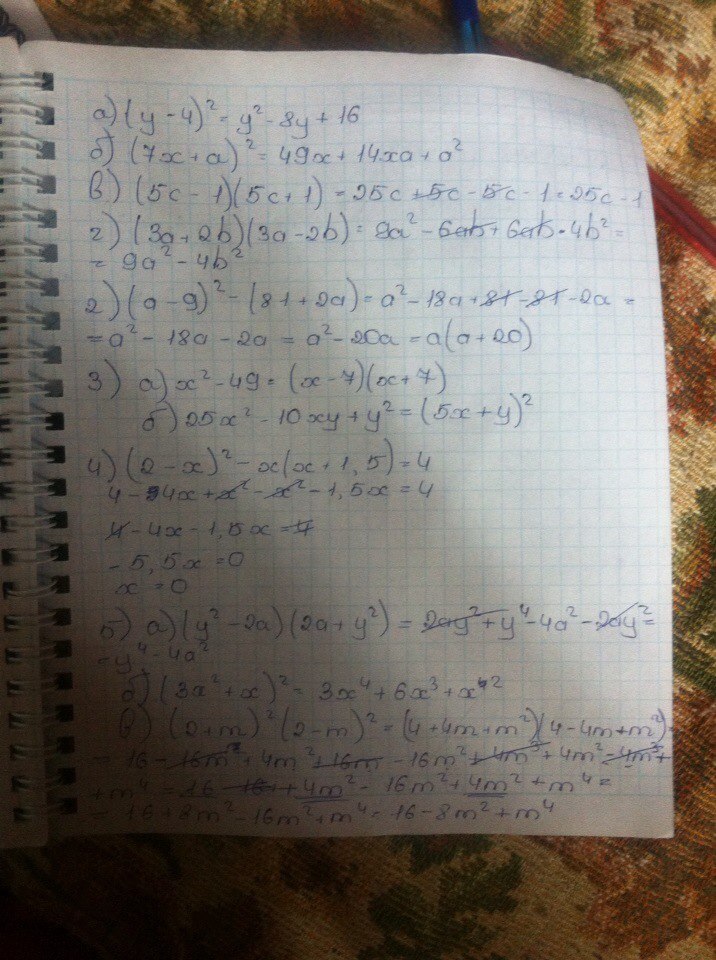 а) (y - 4)² = y² - 8y + 16
б) (7x + a)² = 49x + 14xa + a²
в) (5c - 1)(5c + 1) = 25c + 5c - 5c - 1 = 25c - 1
г) (3a + 2b)(3a - 2b) = 9a² - 6ab + 6ab - 4b² =
= 9a² - 4b²
2) (a - 9)² - (81 + 2a) = a² - 18a + 81 - 81 - 2a =
= a² - 18a - 2a = a² - 20a = a(a + 20)
3) а) x² - 49 = (x - 7)(x + 7)
б) 25x² - 10xy + y² = (5x + y)²
4) (2 - x)² - x(x + 1,5) = 4
4 - 4x + x² - x² - 1,5x = 4
4 - 4x - 1,5x = 4
- 5,5x = 0
x = 0
5) а) (y² - 2a)(2a + y²) = 2ay² + y⁴ - 4a² - 2ay² =
= y⁴ - 4a²
б) (3x² + x)² = 3x⁴ + 6x³ + x²
в) (2 + m)² (2 - m)² = (4 + 4m + m²)(4 - 4m + m²) =
= 16 - 16m + 4m² + 16m - 16m² + 4m³ + 4m² - 4m³ +
+ m⁴ = 16 + 4m² - 16m² + 4m² + m⁴ =
= 16 + 8m² - 16m² + m⁴ = 16 - 8m² + m⁴